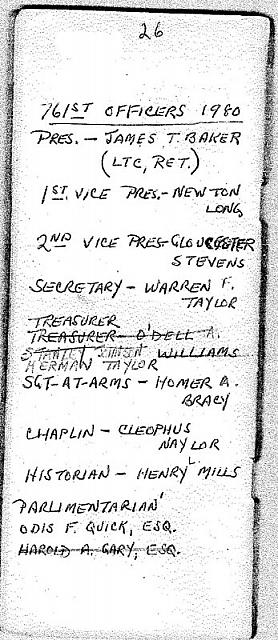 26
761ST OFFICERS 1980
PRES. - JAMES T. BAKER
(LTC, RET.)
1ST. VICE PRES.- NEWTON
LONG
2ND VICE PRES- GLOUCESTER
STEVENS
SECRETARY - WARREN F.
TAYLOR
TREASURER
TREASURER - O'DELL A.
WILLIAMS
HERMAN TAYLOR
SGT-AT-ARMS - HOMER A.
BRACY
CHAPLIN - CLEOPHUS
NAYLOR
HISTORIAN - HENRY L. MILLS
PARLIMENTARIAN
ODIS F. QUICK, ESQ.
HAROLD A. GARY, ESQ.